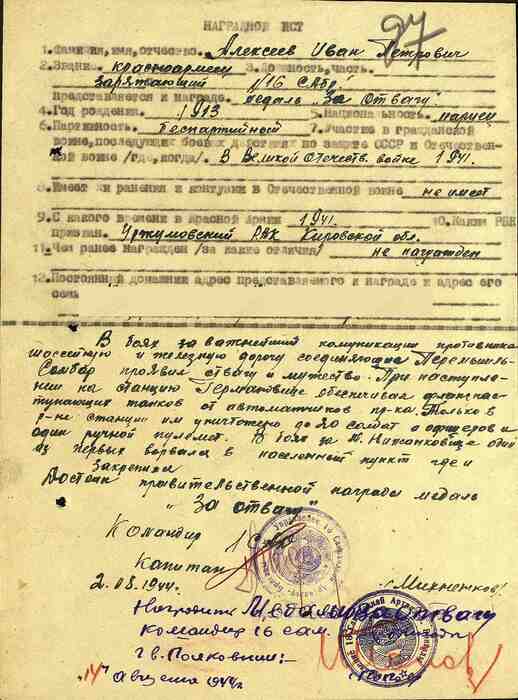 97
НАГРАДНОЙ ЛИСТ
1. Фамилия, имя, отчество. Алексеев Иван Петрович
2. Звание. красноармеец 3. Должность, часть.
заряжающий 1/16 САбр.
Представляется к награде медаль „За Отвагу"
4. Год рождения. 1913 5. Национальность мариец
6. Партийность. беспартийный 7. Участие в гражданской
войне, последующих боевых действиях по защите СССР и Отечествен-
ной войне /где, когда/. В Великой Отечеств. войне 1941.
8. Имеет ли ранения и контузии в Отечественной войне не имеет
9. С какого времени в Красной Армии 1941. 10. Каким РВК
призван. Уржумовский РВК Кировской обл.
11. Чем ранее награжден /за какие отличия/ не награжден
12. Постоянный домашний адрес представляемого к награде и адрес его
семьи
В боях за важнейшие комуникации противника
шоссейную и железную дорогу соединяющие Перемышль-
Самбор проявил отвагу и мужество. При наступле-
нии на станцию Германовице обеспечивал фланг нас-
тупающих танков от автоматчиков пр-ка. Только в
р-не станции им уничтожено до 20 солдат и офицеров и
один ручной пулемет. В боях за м. Нижанковице один
из первых ворвался в населенный пункт где и
закрепился
Достоин правительственной награды медаль
„За отвагу"
Командир 1
Капитан (Михненков)
2.08.1944г.
Наградить Медаль За Отвагу
Командир 16 сам.
Гв. Полковник:-
„14" Августа 1944г